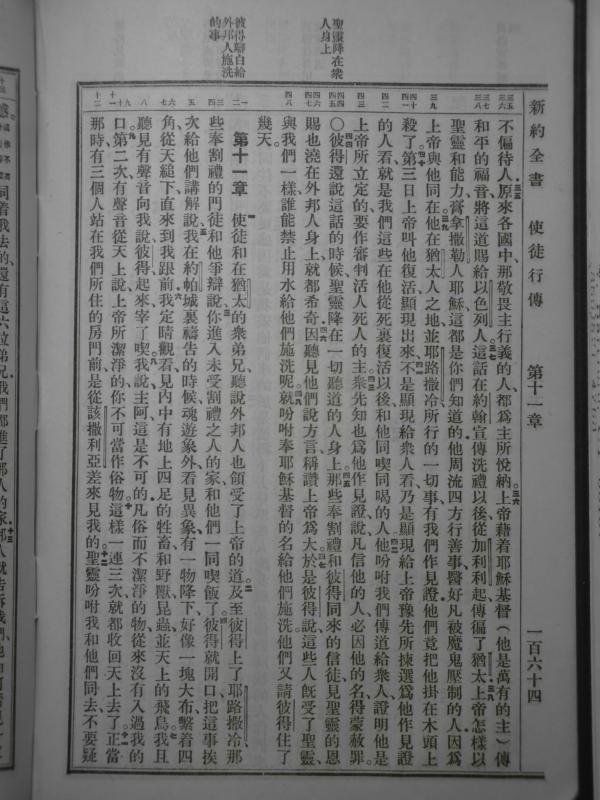 新約全書　使徒行傳　第十一章　一百六十四
聖靈降在衆
人身上
彼得辯白給
外邦人施洗
的事
不偏待人原來各國中那敬畏主行義的人都爲主所悅納上帝藉着耶穌基督（他是萬有的主）傳
和平的福音將這道賜給以色列人這話在約翰宣傳洗禮以後從加利利起傳徧了猶太上帝怎樣以
聖靈和能力膏拿撒勒人耶穌這都是你們知道的他周流四方行善事醫好凡被魔鬼壓制的人因爲
上帝與他同在他在猶太人之地並耶路撒冷所行的一切事有我們作見證他們竟把他掛在木頭上
殺了第三日上帝叫他復活顯現出來不是顯現給衆人看乃是顯現給上帝豫先所揀選爲他作見證
的人看就是我們這些在他從死裏復活以後和他同喫同喝的人他吩咐我們傳道給衆人證明他是
上帝所立定的要作審判活人死人的主衆先知也爲他作見證說凡信他的人必因他的名得蒙赦罪。
〇彼得還說這話的時候聖靈降在一切聽道的人身上那些奉割禮和彼得同來的信徒見聖靈的恩
賜也澆在外邦人身上就都希奇因聽見他們說方言稱讚上帝爲大於是彼得說這些人旣受了聖靈
與我們一樣誰能禁止用水給他們施洗呢就吩咐奉耶穌基督的名給他們施洗他們又請彼得住了
幾天。
第十一章　使徒和在猶太的衆弟兄聽說外邦人也領受了上帝的道及至彼得上了耶路撒冷那
些奉割禮的門徒和他爭辯說你進入未受割禮之人的家和他們一同喫飯了彼得就開口把這事挨
次給他們講解說我在約帕城裏禱告的時候魂遊象外看見異象有一物降下好像一塊大布繫着四
角從天縋下直來到我跟前我定睛觀看見內中有地上四足的牲畜和野獸昆蟲並天上的飛鳥我且
聽見有聲音向我說彼得起來宰了喫我說主阿這是不可的凡俗而不潔淨的物從來沒有入過我的
口第二次有聲音從天上說上帝所潔淨的你不可當作俗物這樣一連三次就都收回天上去了正當
那時有三個人站在我們所住的房門前是從該撒利亞差來見我的聖靈吩咐我和他們同去不要疑